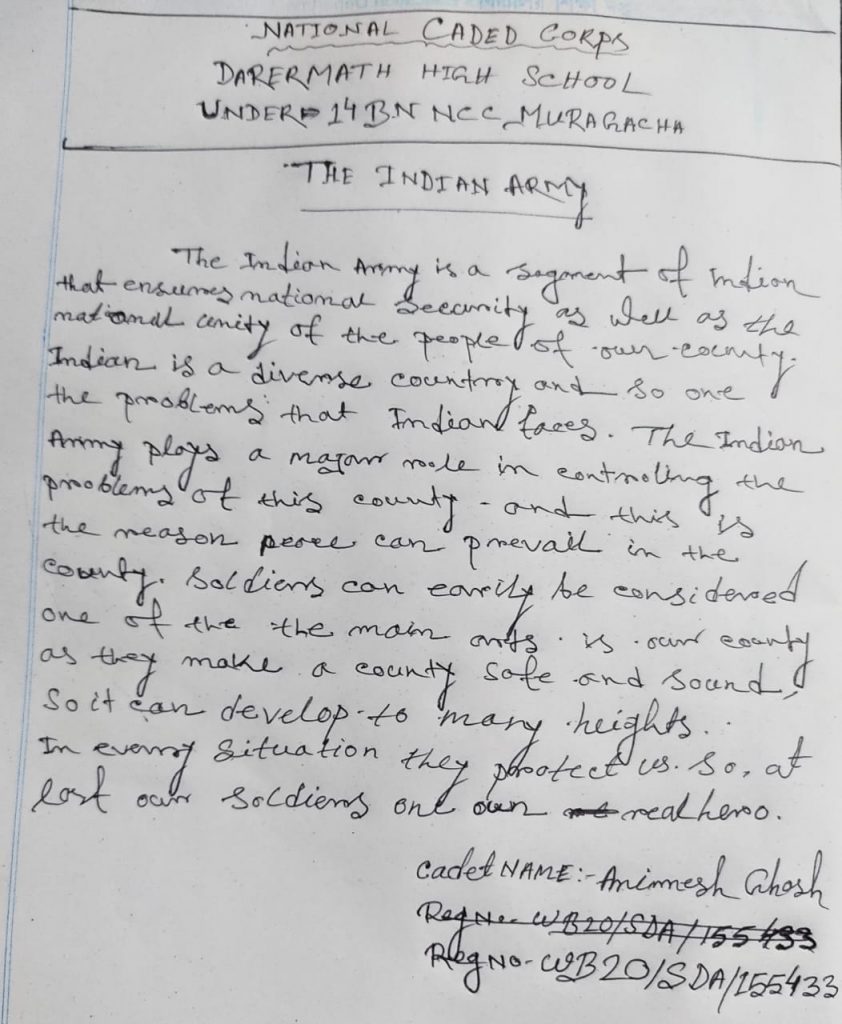 NATIONAL CADED CORPS
DARERMATH HIGH SCHOOL
UNDER 14 BN NCC MURAGACHA
THE INDIAN ARMY
The Indian Army is a segoment of Indian
that ensures national Seecurity as well as the
national unity of the people of our county.
Indian is a diverse country and so one
the problems that Indian faces. The Indian
Army plays a major role in controling the
problems of this county - and this is
the reason peree can prevail in the
county. Soldiers can earily be considered
one of the the main arts is our county
as they make a county safe and sound,
So it can develop to many heights.
In every situation they prootect us. So, at
last our soldiers one our real hero.
Cadet NAME:- Animesh Ghosh
Reg No- WB20/SDA/155433
Reg No- WB20/SDA/155433